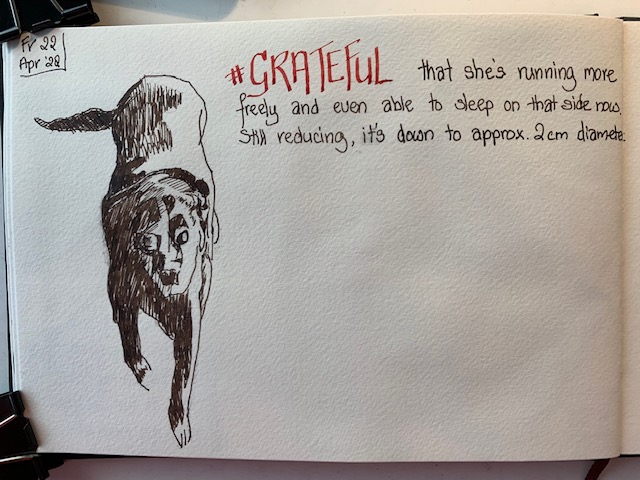 Fr 22
Apr '22
#GRATEFUL that she's running more
freely and even able to sleep on that side now.
Still reducing, it's down to approx. 2cm diameter.